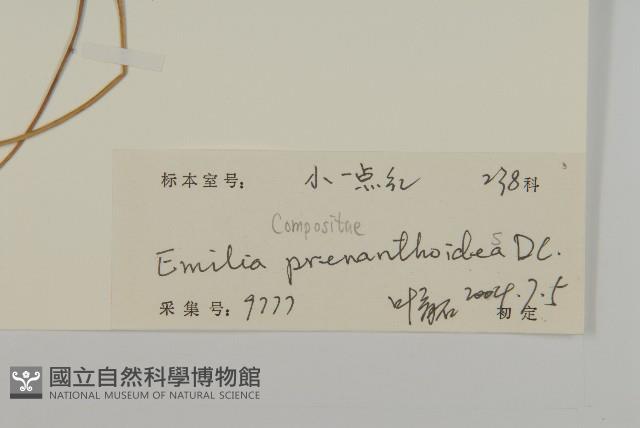 标本室号: 小一点红 238科
Compositae
Emilia prenanthoidea s DC.
采集号: 9777 2004.7.5
初定
國立自然科學博物館
NATIONAL MUSEUM OF NATURAL SCIENCE